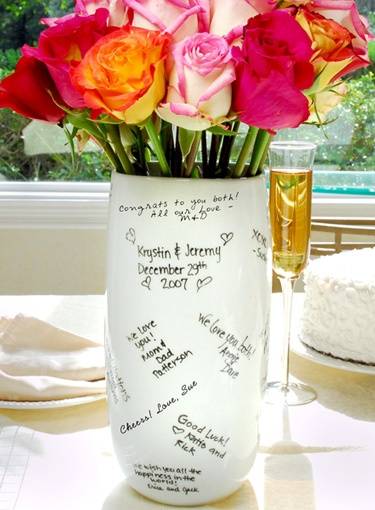 Congrats to you both!
All our Love -
M & D
XOXO
Krystin & Jeremy
December 29th
2007
We Love
you!
Mom &
Dad
Patterson
We love you both!
Annie
Dave
Cheers! Love, Sue
Good Luck!
Katie and
Rick
We wish you all the
happiness in the
world!
Erica and Jack